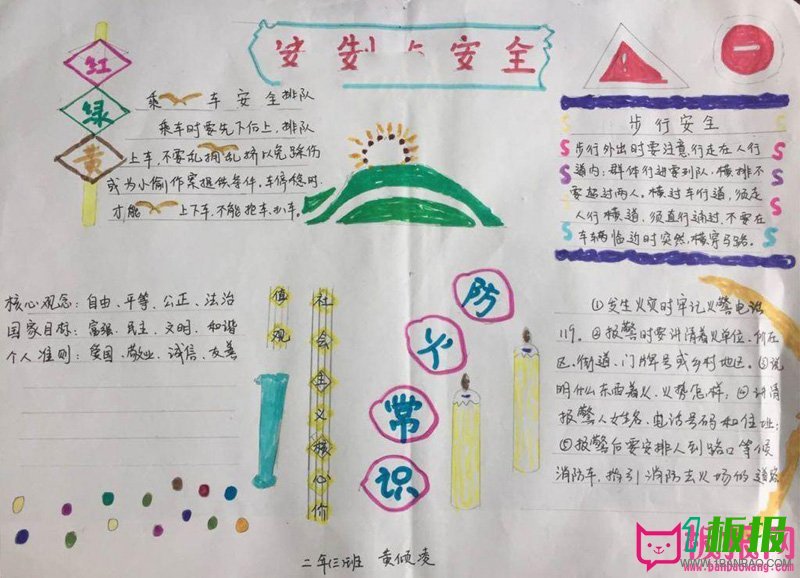 安全
红
绿
黄
乘车安全排队
乘车时要先下后上,排队
上车,不要乱拥乱挤以免踩伤
或为小偷作案提供条件,车停稳时
才能上下车,不能抢车、扒车。
步行安全
步行外出时要注意行走在人行
道内,群体行进要列队,横排不
要超过两人。横过车行道,须走
人行横道,须直行通过,不要在
车辆临近时突然横穿马路。
核心观念:自由、平等、公正、法治
国家目标:富强、民主、文明、和谐
个人准则:爱国、敬业、诚信、友善
社会主义核心价
值观
防火常识
①发生火灾时牢记火警电话
119。②报警时要讲清着火单位、所在
区、街道、门牌号或乡村地区。③说
明什么东西着火,火势怎样;④讲清
报警人姓名、电话号码和住址;
⑤报警后要安排人到路口等候
消防车,指引消防去火场的道路
二年(三)班 黄倾凌
板报网
1板报
WWW.1BANBAO.COM
www.banbaowang.com